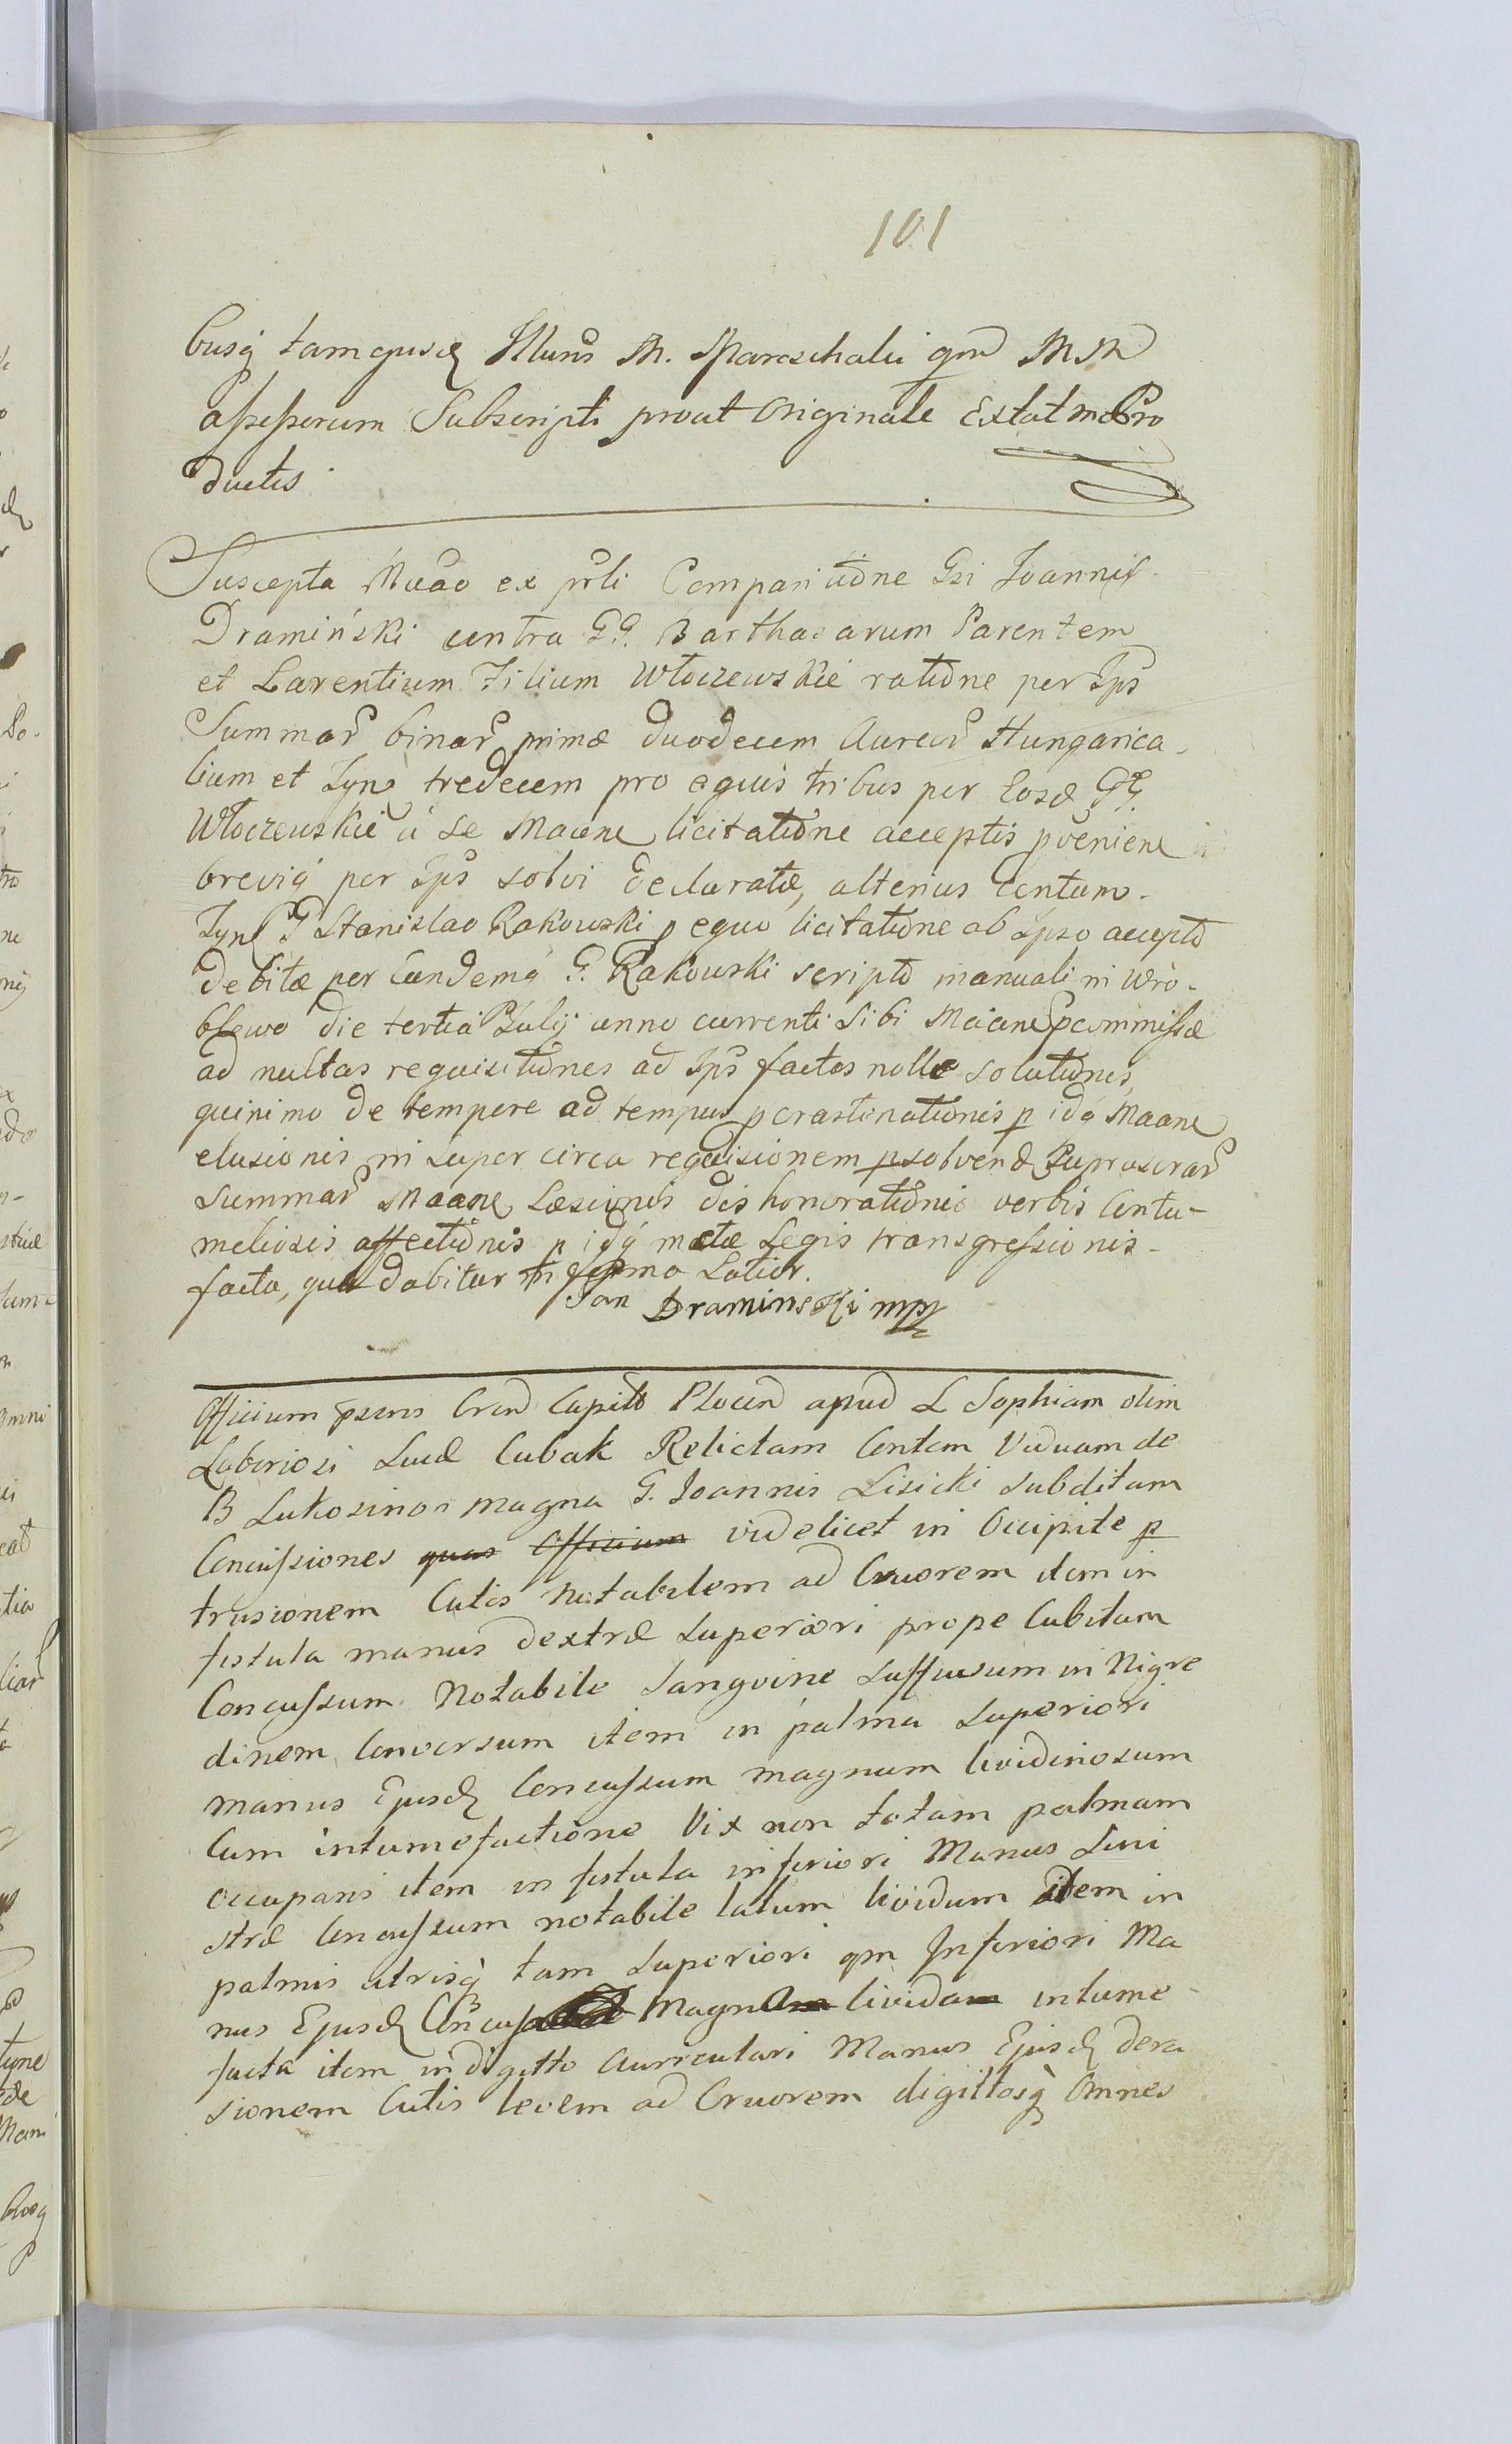 101
busq tam ejusd Illuris M. Marschalii qm MM
assessorum Subscripti prout Originale Extat me Pro
ductis
Suscepta Mâao ex prli Comparitione Gsi Joannis
Dramiński contra GG. Barthasarum Parentem
et Larentium Filium Włoczewskie ratione per Ips
Summar binar primæ duodecem Aureor Hungarica
lium et Tynf tredecem pro equis tribus per Eosd GG.
Włoczewskie à se Maane licitatione acceptis pveniene
breviq per Ips solvi declaratæ, alterius Centum
Tynf G Stanislao Rakowski p equo licitatione ab Ipso accepto
debitæ per Eundemq G. Rakowski scripto manuali in Wro-
blewo die tertia Julij anno currenti sibi Maane pcommissæ
ad multas requisitiones ad Ips factas nolle solutionis,
quinimo de tempore ad tempus pcrastinationis p idq Maane
elusionis in super circa requisionem psolvend Suprascrar
Summar Maane Læsionis dishonorationis verbis Contu-
meliosis affectionis p idq mctæ Legis transgressionis
facta, qua dabitur in termo Latior.
Jan Dramiński mp
Officium psens Cren Capitle Plocen apud L Sophiam olim
Laboriosi Lucæ Cubak Relictam Contem Viduam de
B Lukosinon magna G. Joannis Lisicki subditam
Concussiones quas Officium videlicet in Occipite p
trusionem Cutis notabilem ad Cruorem item in
fistula manus dextræ superiori prope Cubitum
Concussum Notabile Sangvine suffusum in Nigre
dinem Conversum item in palma superiori
manus Ejusd Concussum magnum lividinosum
Cum intumefactione Vix non totam palmam
occupans item in fistula inferiori Manus Sini
stræ Concussum notabile latum lividum item in
palmis utrisq tam superiori qm Inferiori Ma
nus Ejusd Concus magna livida intume
facta item in digitto aurriculari Manus Ejusd dera
sionem Cutis levem ad Cruorem digittosq Omnes